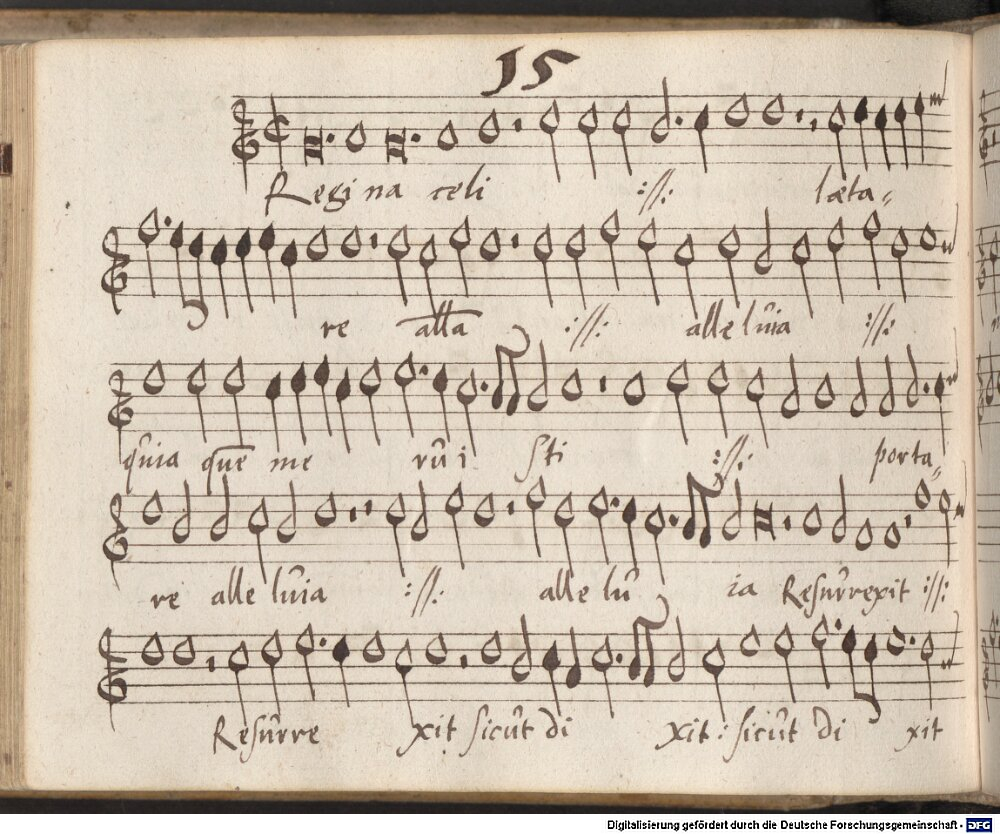 15
Regi na celi :||: læta„
re alla :||: alle lŭia :||:
qŭia que me rŭ i sti :||: porta„
re alle lŭia :||: alle lŭ ia Resŭrrexit :||:
Resŭrre xit sicŭt di xit : sicŭt di xit
Digitalisierung gefördert durch die Deutsche Forschungsgemeinschaft - DFG